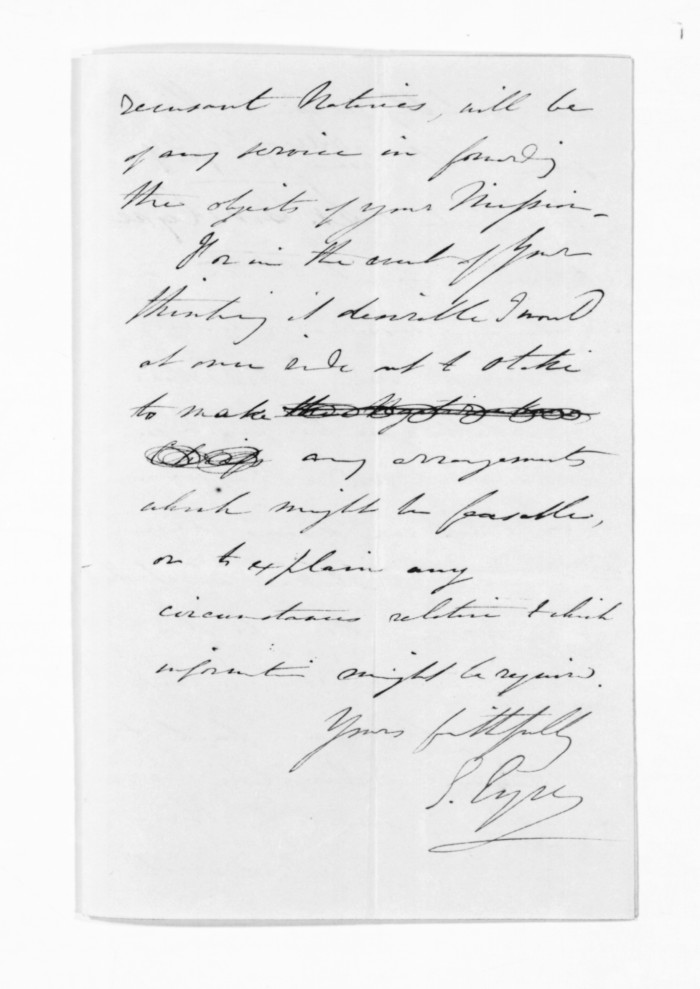 recusant Natives, will be
of any service in forwarding
the objects of your Mission –
in the event of your
thinking it desirable I would
at once ride out to Otaki
to make
any arrangements
which might be feasable,
or to explain any
circumstances relative to which
information might be required.
Yours faithfully
E. Eyre